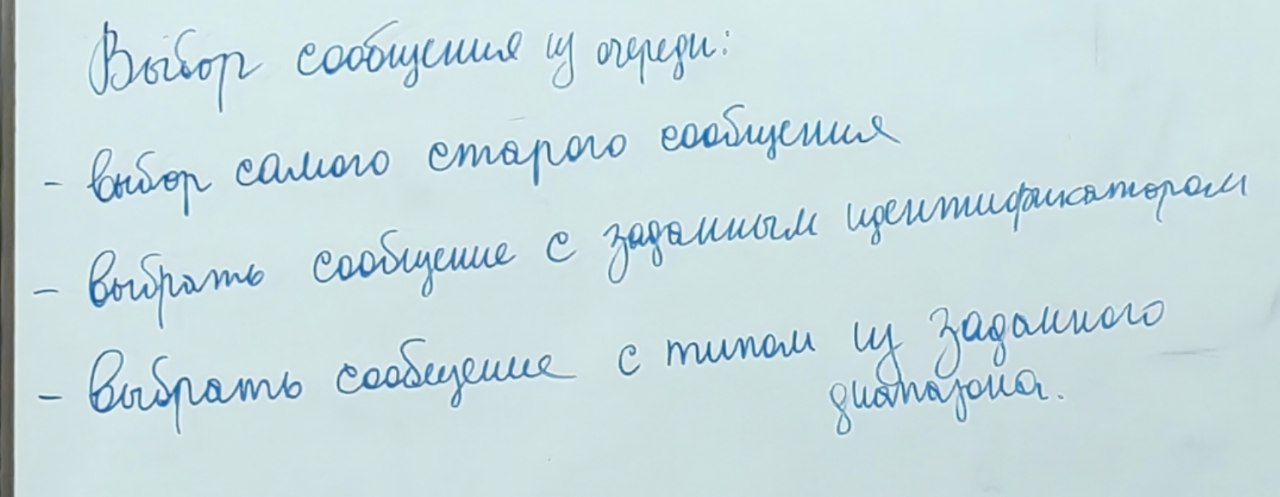 Выбор сообщения из очереди:
- выбор самого старого сообщения
- выбрать сообщение с заданным идентификатором
- выбрать сообщение с типом из заданного
диапазона.